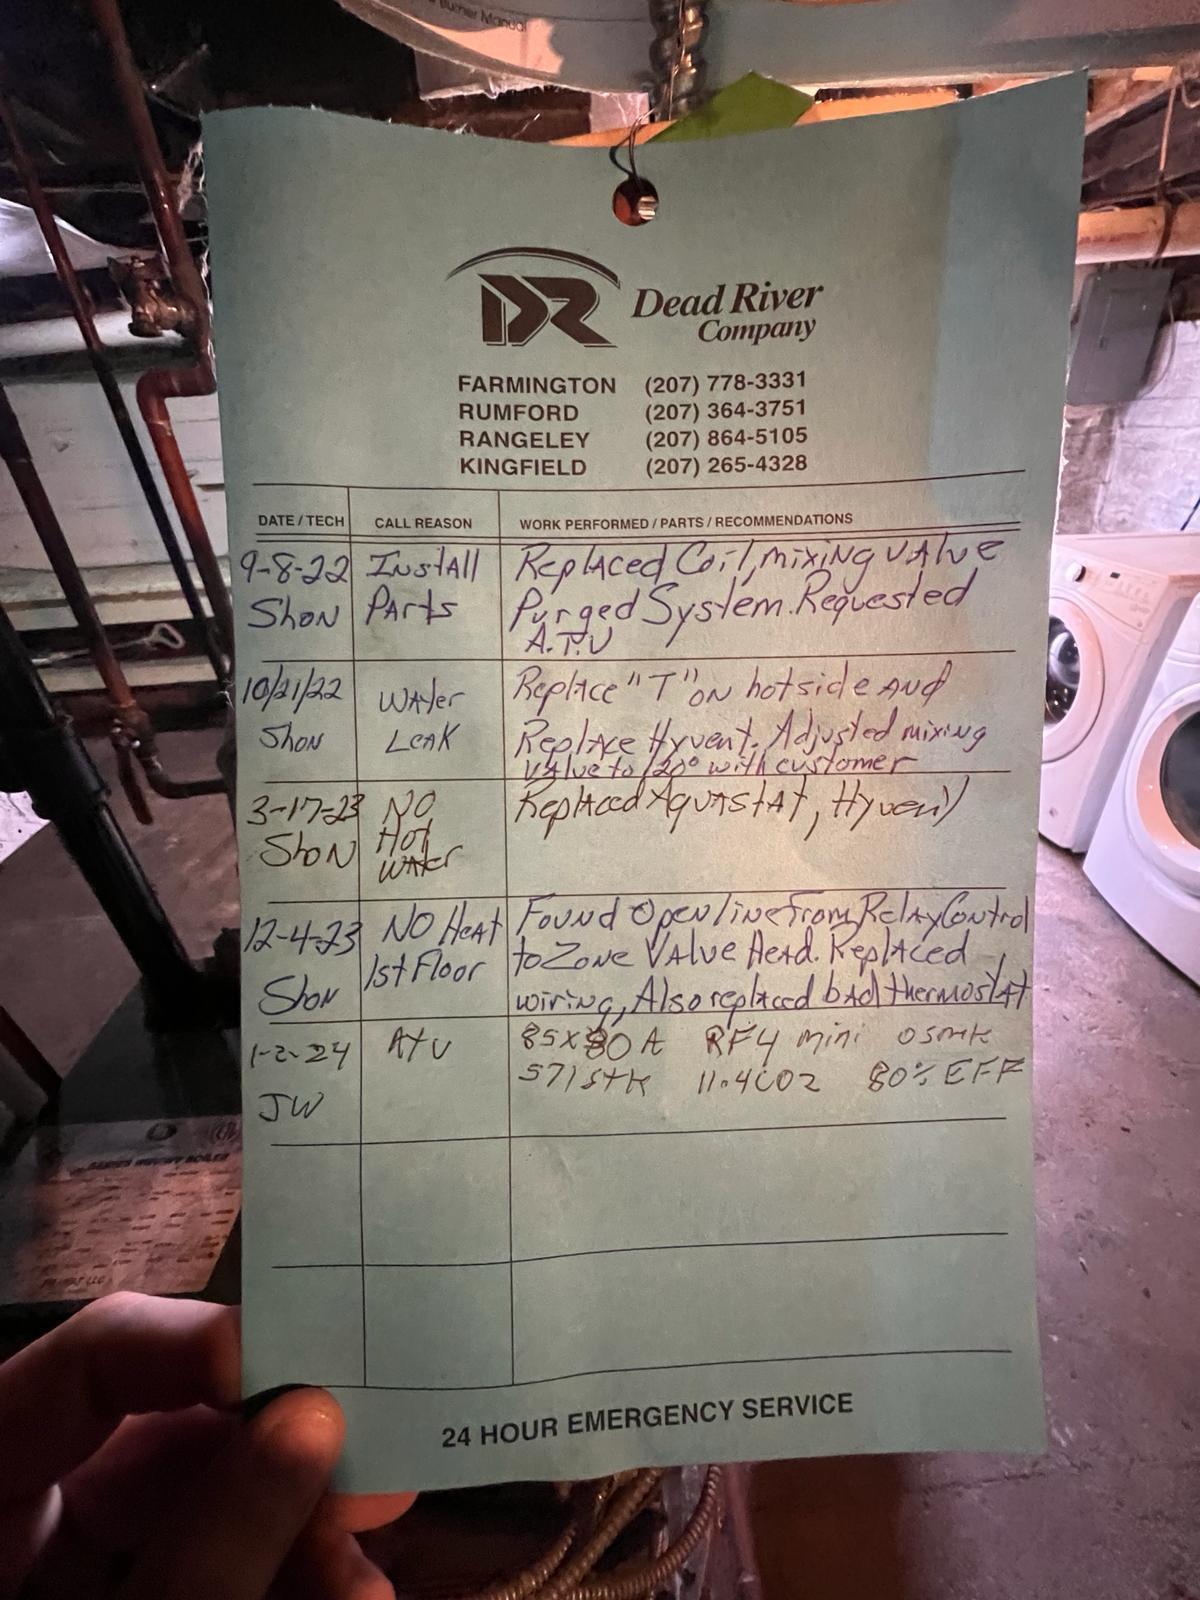 Burner Manual
DR Dead River
Company
FARMINGTON (207) 778-3331
RUMFORD (207) 364-3751
RANGELEY (207) 864-5105
KINGFIELD (207) 265-4328
DATE / TECH CALL REASON WORK PERFORMED / PARTS / RECOMMENDATIONS
9-8-22 Install Replaced Coil, mixing valve
Shon Parts Purged System. Requested
A.T.U
10/21/22 Water Replace "T" on hot side and
Shon Leak Replace Hyvent. Adjusted mixing
valve to 120° with customer
3-17-23 NO Replaced Aquastat, Hyvent
Shon Hot
Water
12-4-23 NO Heat Found Open line from Relay Control
1st Floor to Zone Valve Head. Replaced
Shon wiring, Also replaced bad thermostat
1-2-24 ATU 85X80 A RF4 mini 0smk
JW 571stk 11.4CO2 80% EFF
24 HOUR EMERGENCY SERVICE